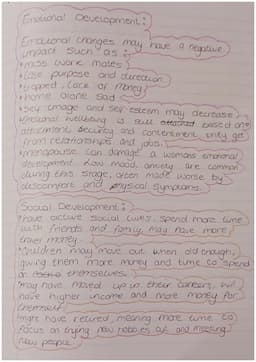 Emotional Development:
Emotional changes may have a negative
impact such as:
• miss work mates
• Lose purpose and direction
• trapped, lack of money
• home alone sad
• self image and self esteem may decrease
• Emotional wellbeing is still based on
attachment, security and contentment they get
from relationships and jobs.
• menopause can damage a womans emotional
development. low mood, anxiety are common
during this stage, often made worse by
discomfort and physical symptoms.
Social Development:
• have active social lives, spend more time
with friends and family, may have more
travel money.
• Children may move out when old enough,
giving them more money and time to spend
on themselves.
• may have moved up in their careers, will
have higher income and more money for
themself
• might have retired, meaning more time to
focus on trying new hobbies out and meeting
new people.